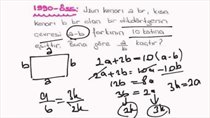 1990-
Uzun kenarı a br, kısa
kenarı b br olan bir dikdörtgenin
çevresi a-b farkının 10 katına
eşittir. Buna göre a/b kaçtır?
a
b
b
a
2a+2b=10(a-b)
2a+2b=10a-10b
12b=8a
3b=2a
3k 2k
3k=2a
a/b = 3k/2k